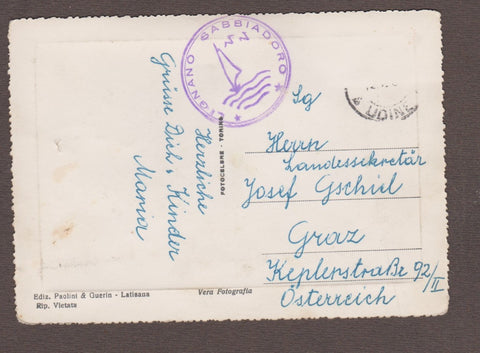 LIGNANO SABBIADORO
UDINE
Herzliche
Grüsse Dich u. Kinder
Maria
FOTOCELERE - TORINO
Sg
Herrn
Landessekretär
Josef Gschiel
Graz
Keplerstraße 92/II
Österreich
Ediz. Paolini & Guerin - Latisana
Rip. Vietata
Vera Fotografia